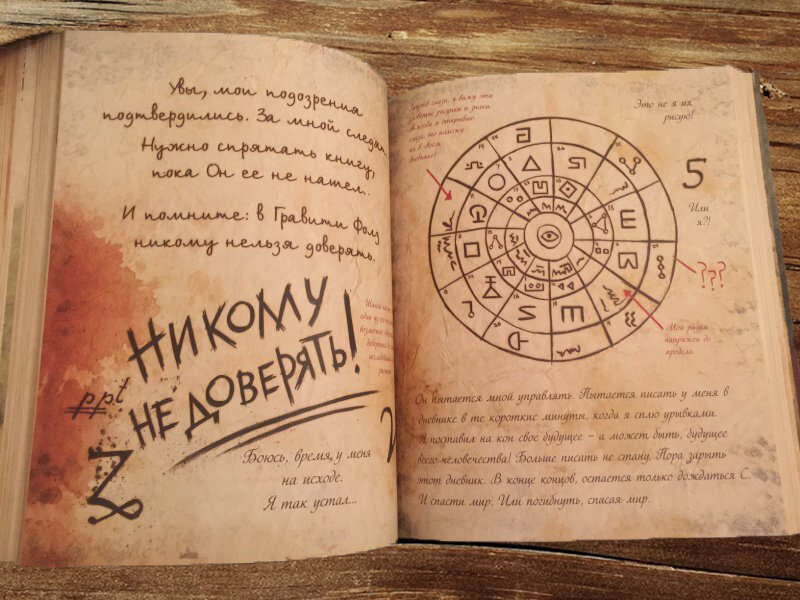 Увы, мои подозрения
подтвердились. За мной следят.
Нужно спрятать книгу,
пока Он ее не нашел...
И помните: в Гравити Фолз
никому нельзя доверять.
НИКОМУ
НЕ ДОВЕРЯТЬ!
ppt
Боюсь, время у меня
на исходе.
Я так устал...
Закрыв глаза, я вижу эти
рисунки и знаки.
А когда я открываю
глаза, то нахожу
их в своем
дневнике!
Это не я их
рисую!
5
Или
я?!
???
Мой разум
напряжен до
предела.
Он пытается мной управлять. Пытается писать у меня в
дневнике в те короткие минуты, когда я сплю урывками.
Я поставил на кон свое будущее – а может быть, будущее
всего человечества! Больше писать не стану. Пора зарыть
этот дневник. В конце концов, остается только дождаться С.
И спасти мир. Или погибнуть, спасая мир.